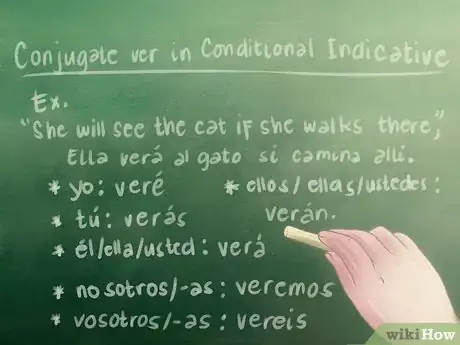 Conjugate ver in Conditional Indicative
Ex.
"She will see the cat if she walks there,"
Ella verá al gato si camina allí.
* yo: veré
* tú: verás
* él/ella/usted: verá
* nosotros/-as: veremos
* vosotros/-as: vereis
* ellos/ellas/ustedes:
verán.
wikiHow